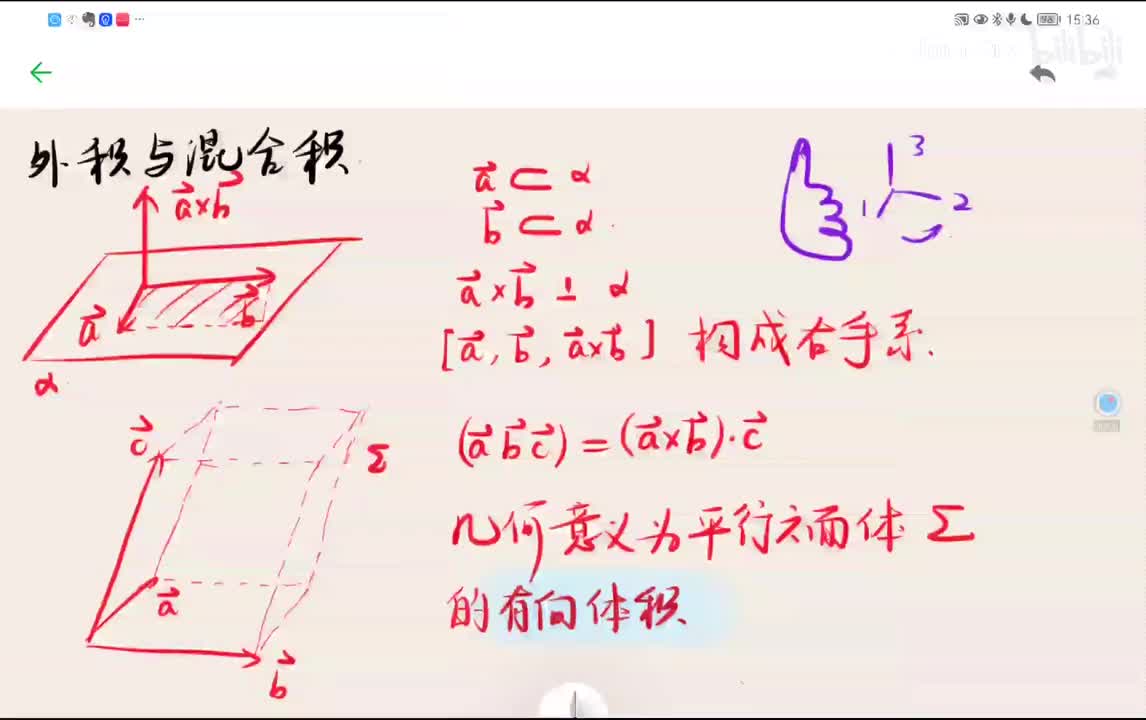 15:36
bilibili
外积与混合积
a⃗×b⃗
a⃗
b⃗
α
a⃗ ⊂ α
b⃗ ⊂ α
a⃗×b⃗ ⊥ α
[a⃗, b⃗, a⃗×b⃗] 构成右手系.
1 2 3
c⃗
Σ
a⃗
b⃗
(a⃗ b⃗ c⃗) = (a⃗×b⃗)·c⃗
几何意义为平行六面体 Σ
的有向体积